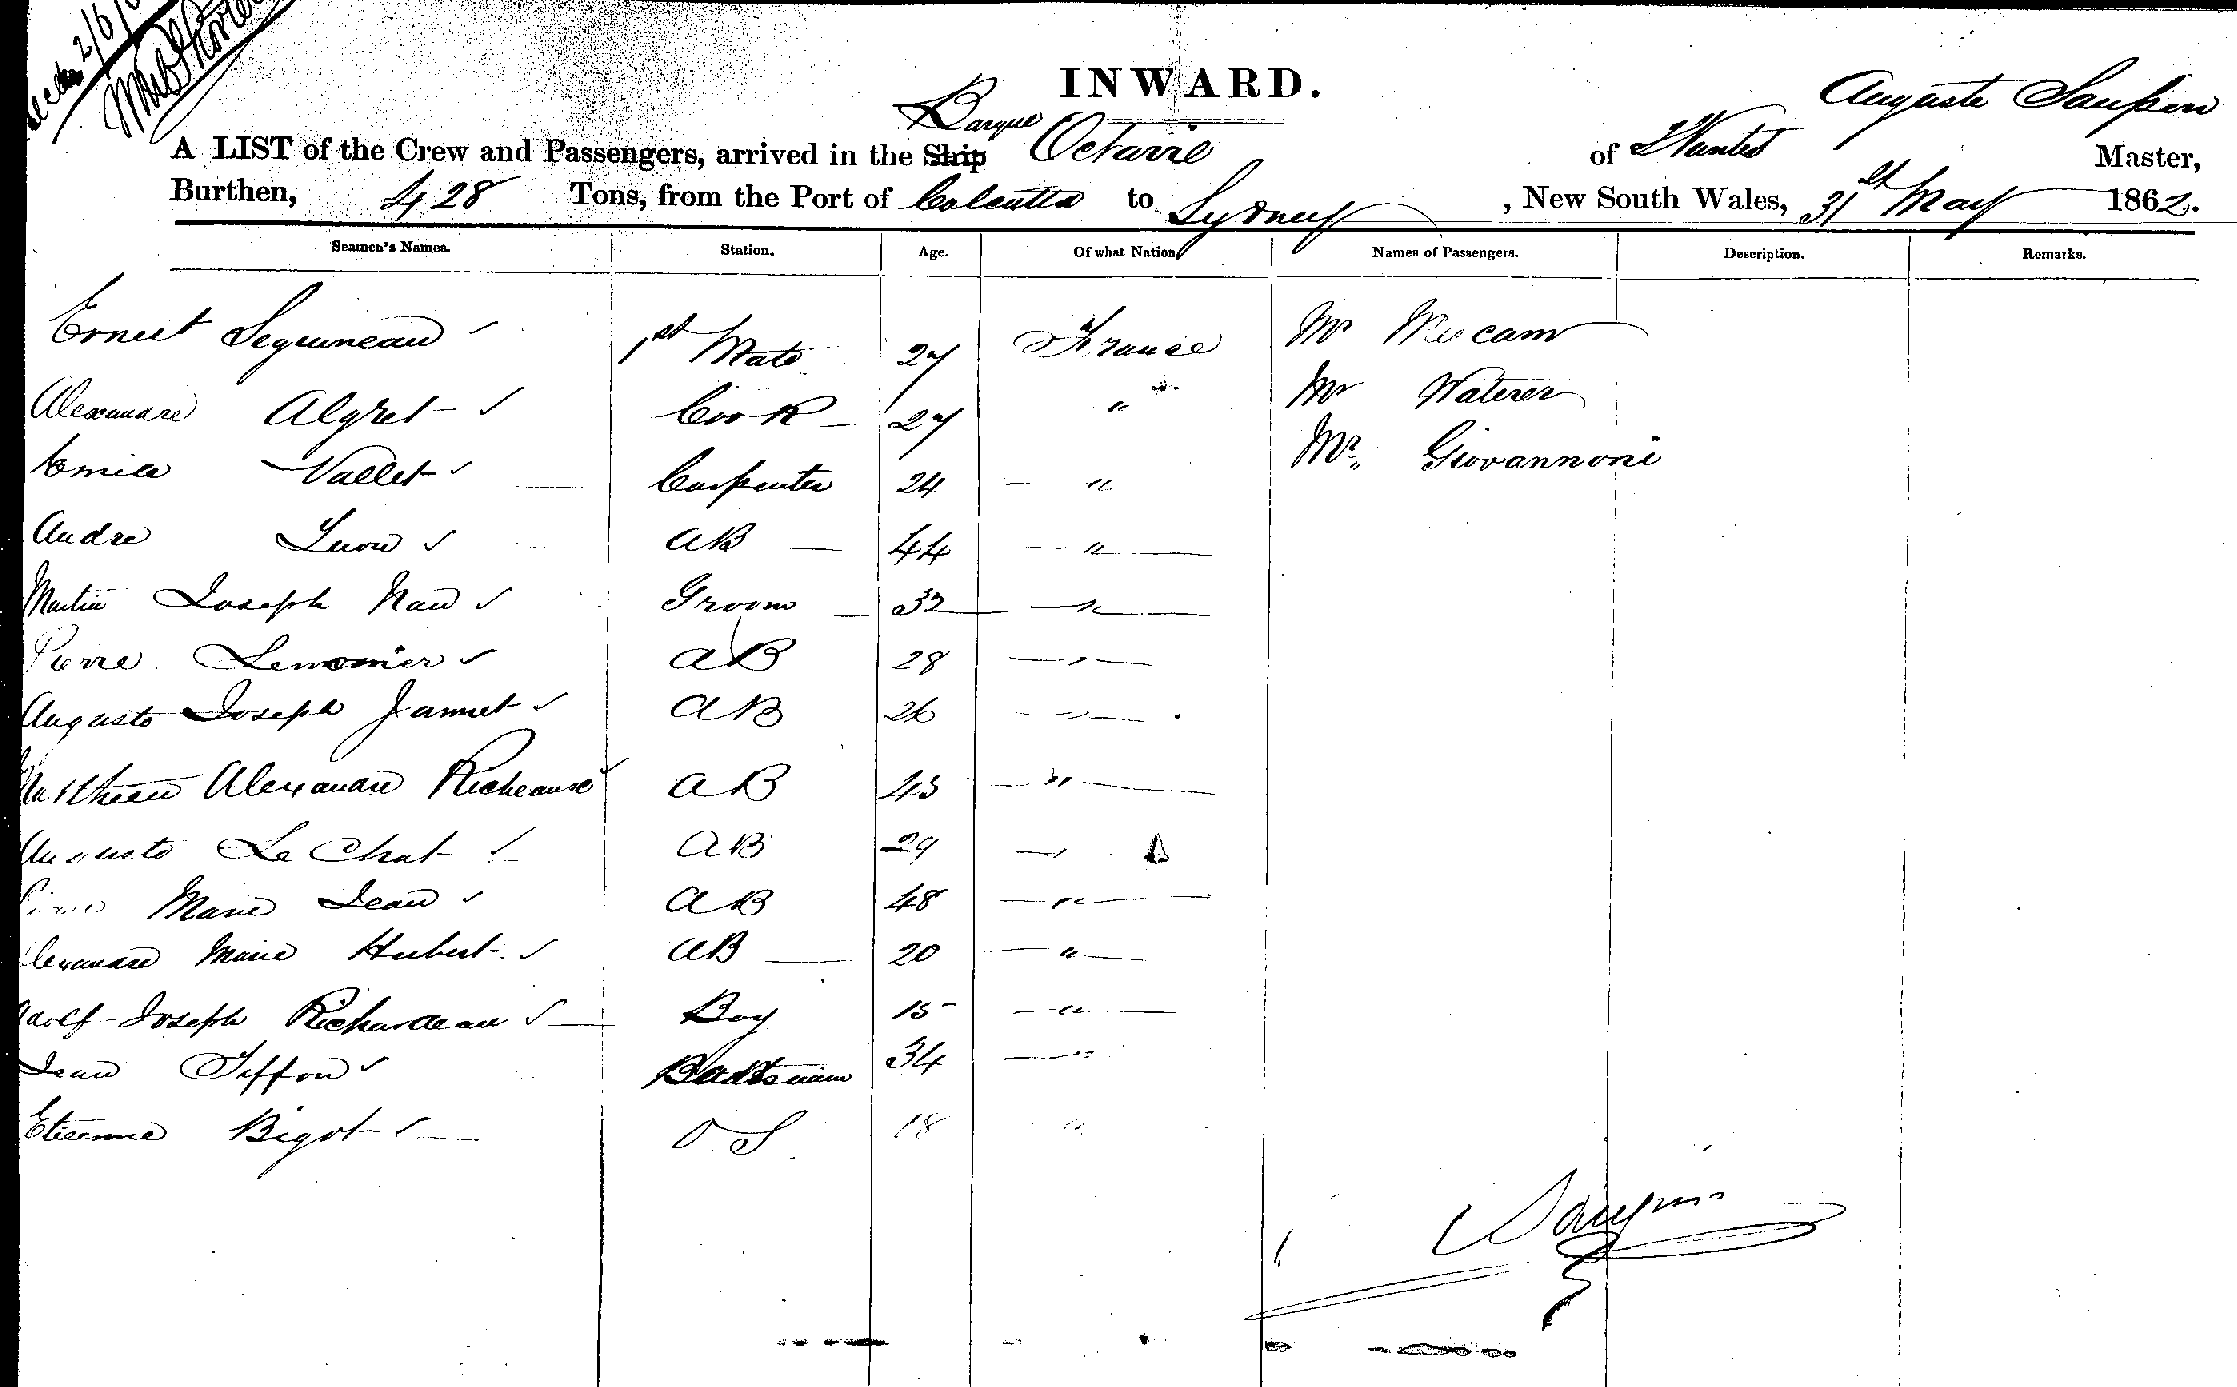 INWARD.
Barque
Auguste Saupin
A LIST of the Crew and Passengers, arrived in the Ship Octavie of Nantes Master,
Burthen, 428 Tons, from the Port of Calcutta to Sydney, New South Wales, 31st May 1862.
Seamen's Names. Station. Age. Of what Nation. Names of Passengers. Description. Remarks.
Ernest Seguineau 1st Mate 27 France Mr
Alexandre Algret Cook 27 " Mr Waterer
Emile Vallet Carpenter 24 " Mr. Giovannoni
Andre AB 44 "
Martin Joseph Nau Groom "
Pierre Lemonier AB 28 "
Auguste Joseph Jamet AB 26 "
Alexandre AB 43 "
Auguste Le Chat AB 29 "
Pierre Marie Jean AB 48 "
Alexandre Marie Hubert AB 20 "
Adolf Joseph Richardeau Boy 15 "
Jean Tiffon 34 "
Etienne Bigot O S 18 "
Saupin